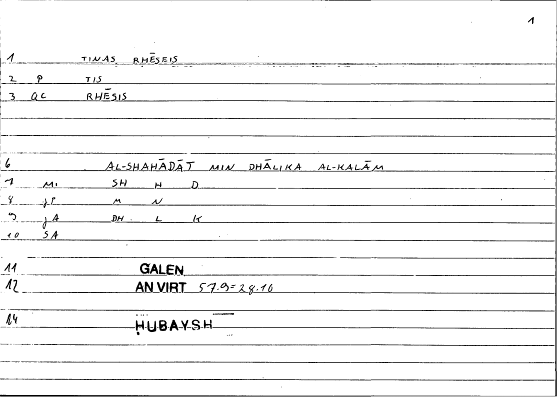 1
1 TINAS RHĒSEIS
2 P TIS
3 QC RHĒSIS
6 AL-SHAHĀDĀT MIN DHĀLIKA AL-KALĀM
7 MI SH H D
8 JP M N
9 JA DH L K
10 SA
11 GALEN
12 AN VIRT 57.9=28.10
14 ḤUBAYSH